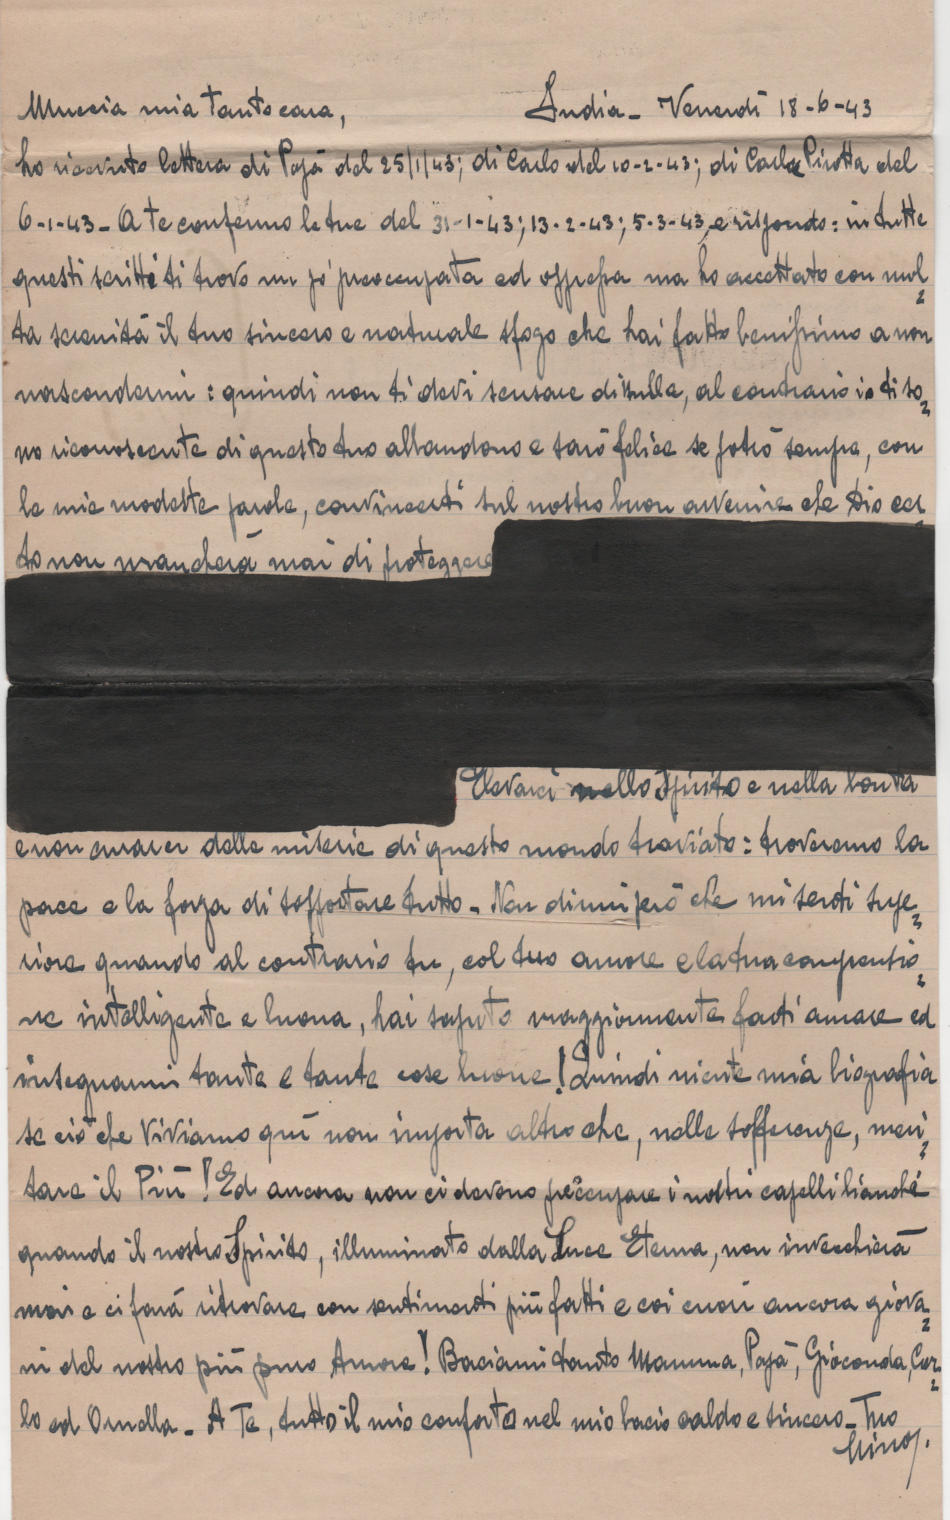 Muccia mia tanto cara, India - Venerdì 18-6-43
ho ricevuto lettera di Papà del 25/1/43; di Carlo del 10-2-43; di Carla Pirotta del
6-1-43 - A te confermo le tue del 31-1-43; 13-2-43; 5-3-43, e rispondo: in tutte
questi scritti ti trovo un pò preoccupata ed oppressa ma ho accettato con mol
ta serenità il tuo sincero e naturale sfogo che hai fatto benissimo a non
nascondermi: quindi non ti devi scusare di nulla, al contrario io ti so
no riconoscente di questo tuo abbandono e sarò felice se potrò sempre, con
le mie modeste parole, convincerti sul nostro buon avvenire che Dio cer
to non mancherà mai di proteggere
Elevarci nello Spirito e nella bontà
e non curarci delle miserie di questo mondo traviato: troveremo la
pace e la forza di sopportare tutto - Non dirmi però che mi senti supe
riore quando al contrario tu, col tuo amore e la tua comprensio
ne intelligente e buona, hai saputo maggiormente farti amare ed
insegnarmi tante e tante cose buone! Quindi niente mia biografia
se ciò che viviamo quì non importa altro che, nelle sofferenze, meri
tare il Più! Ed ancora non ci devono preoccupare i nostri capelli bianchi
quando il nostro Spirito, illuminato dalla Luce Eterna, non invecchierà
mai e ci farà ritrovare con sentimenti più fatti e coi cuori ancora giova
ni del nostro più puro Amore! Baciami tanto Mamma, Papà, Gioconda, Car
lo ed Ornella - A Te, tutto il mio conforto nel mio bacio caldo e sincero - Tuo
Nino.